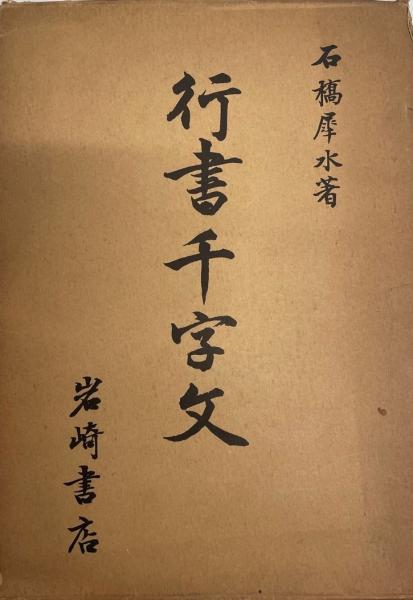 石橋犀水著
行書千字文
岩崎書店